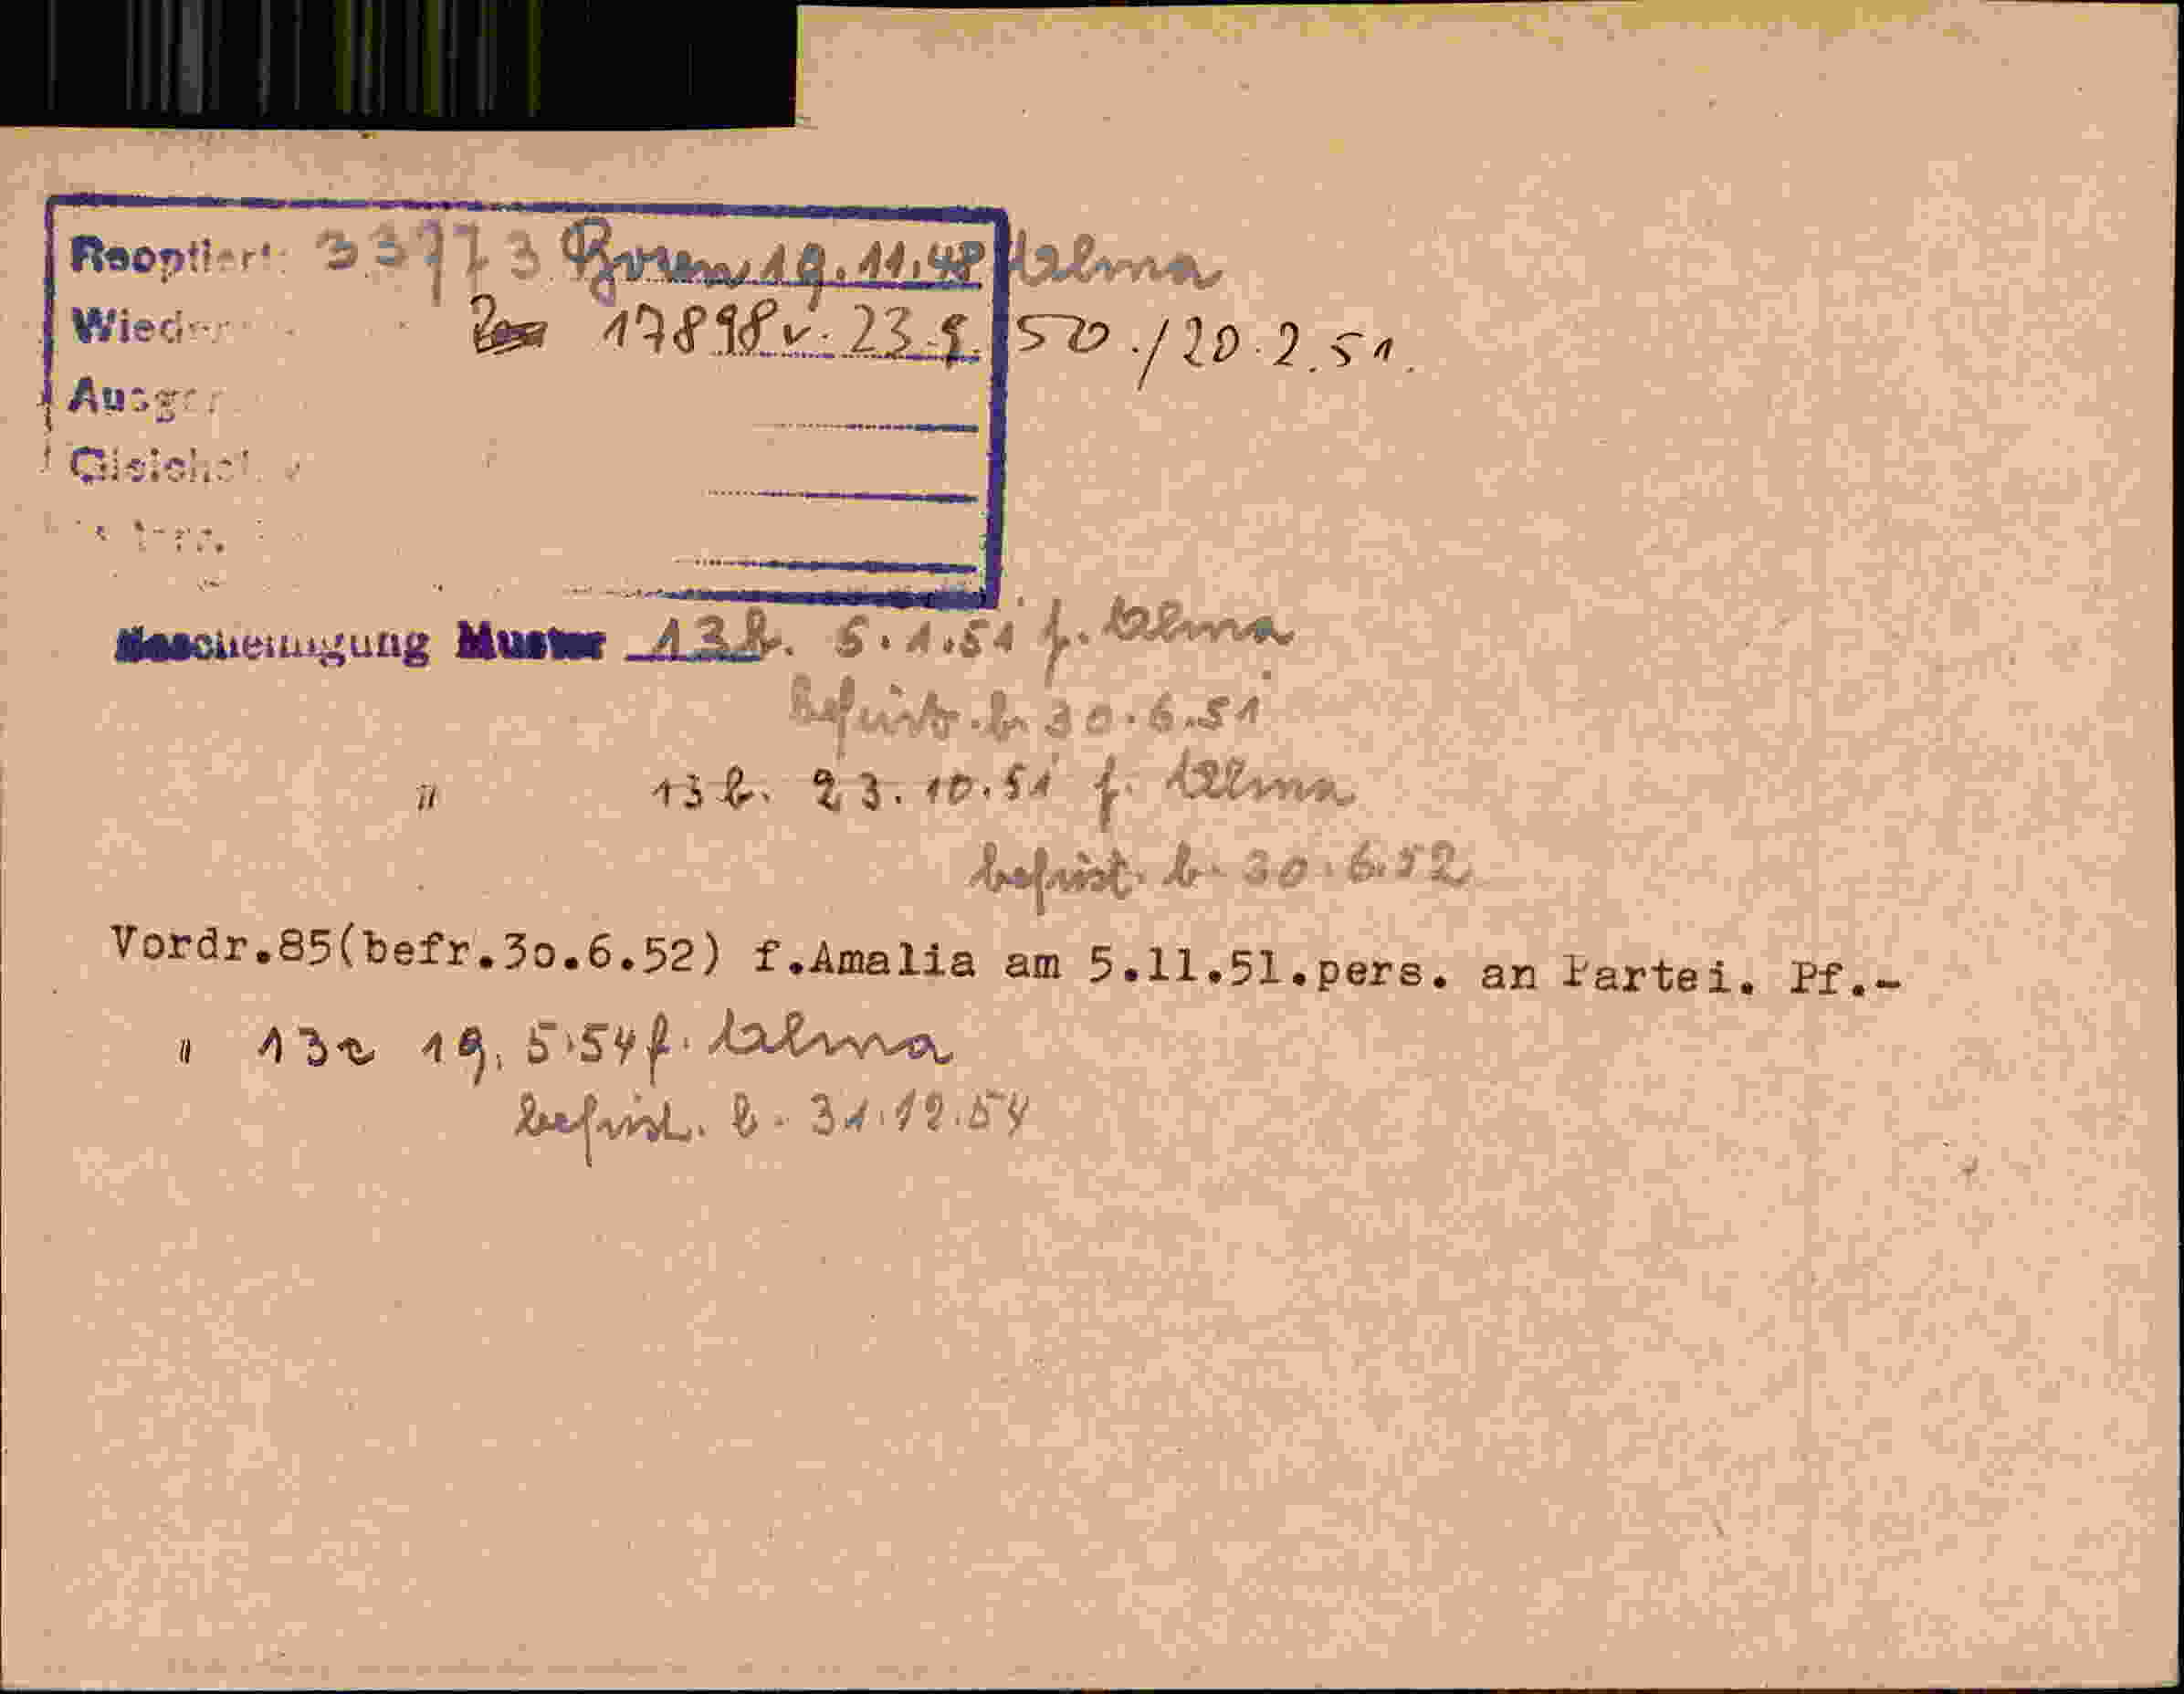 Reoptiert: 33773 Bozen 19.11.48 Alma
Wieder 17898 v. 23.9.50./20.2.51.
Ausge
Gleichst
Bescheinigung Muster 13b. 5.1.51 f. Alma
befrist. b. 30.6.51
" 13b. 23.10.51 f. Alma
befrist. b. 30.6.52
Vordr.85(befr.3o.6.52) f.Amalia am 5.11.51.pers. an Partei. Pf.-
" 13a 19.5.54 f. Alma
befrist. b. 31.12.54